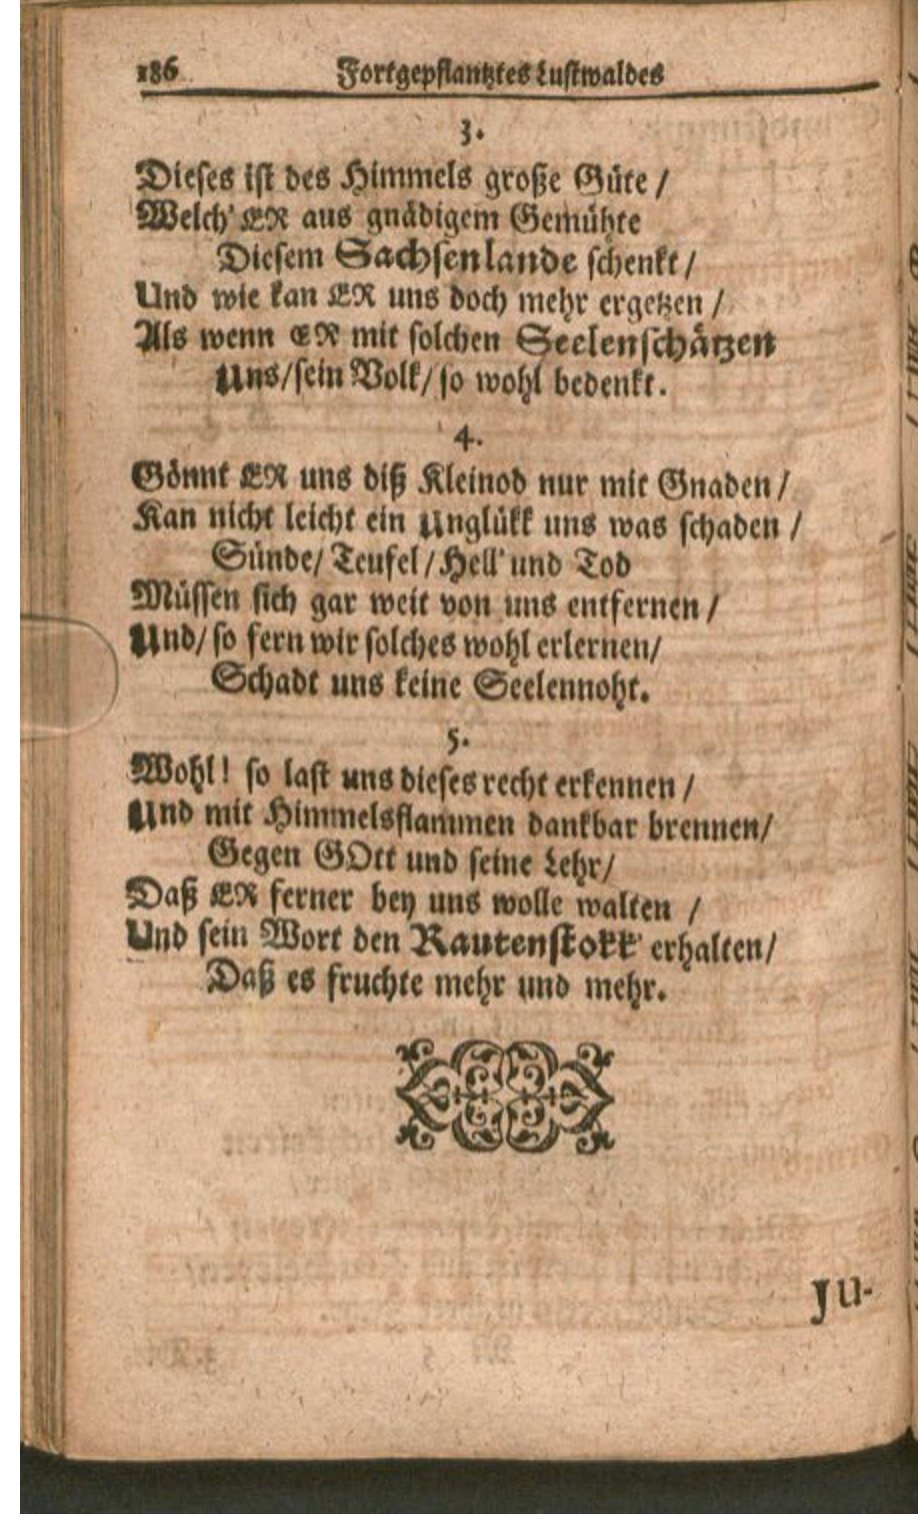 186 Fortgepflantztes Lustwaldes
3.
Dieses ist des Himmels große Güte /
Welch' ER aus gnädigem Gemühte
Diesem Sachsenlande schenkt /
Und wie kan ER uns doch mehr ergetzen /
Als wenn ER mit solchen Seelenschätzen
Uns / sein Volk / so wohl bedenkt.
4.
Gönnt ER uns diß Kleinod nur mit Gnaden /
Kan nicht leicht ein Unglükk uns was schaden /
Sünde / Teufel / Hell' und Tod
Müssen sich gar weit von uns entfernen /
Und / so fern wir solches wohl erlernen /
Schadt uns keine Seelennoht.
5.
Wohl! so last uns dieses recht erkennen /
Und mit Himmelsflammen dankbar brennen /
Gegen GOtt und seine Lehr /
Daß ER ferner bey uns wolle walten /
Und sein Wort den Rautenstokk' erhalten /
Daß es fruchte mehr und mehr.
JU-